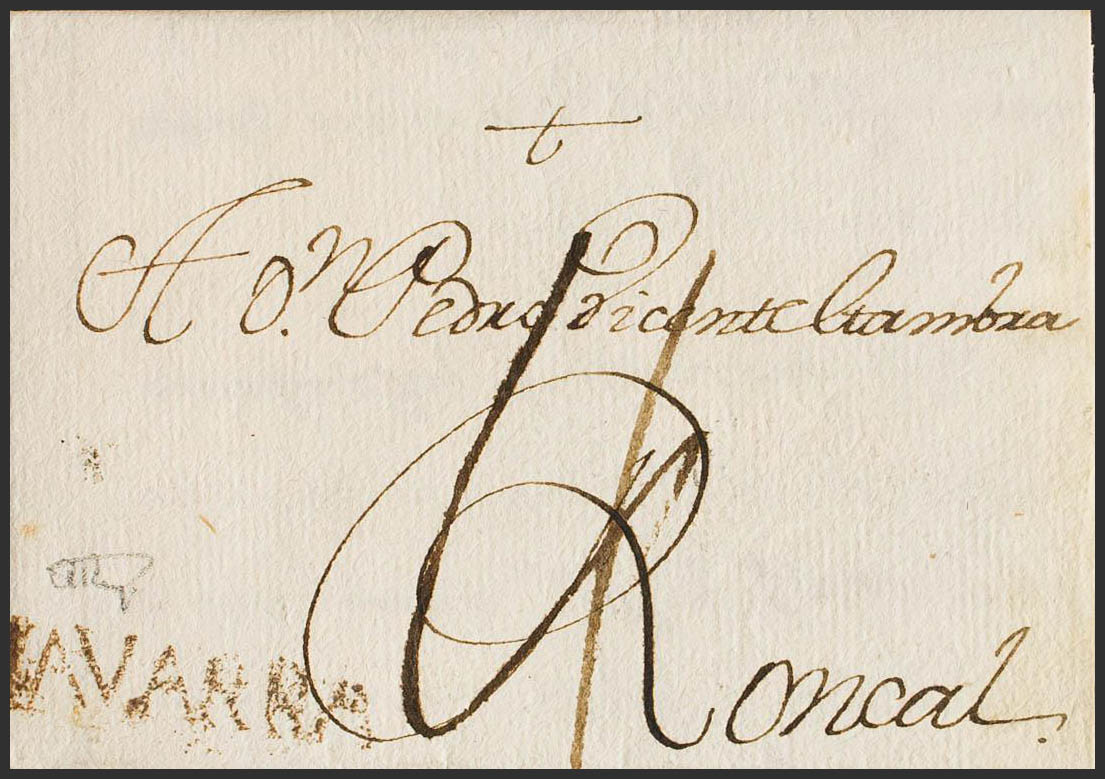 A D.ⁿ Pedro Vicente Gambra
Roncal.
NAVARRA